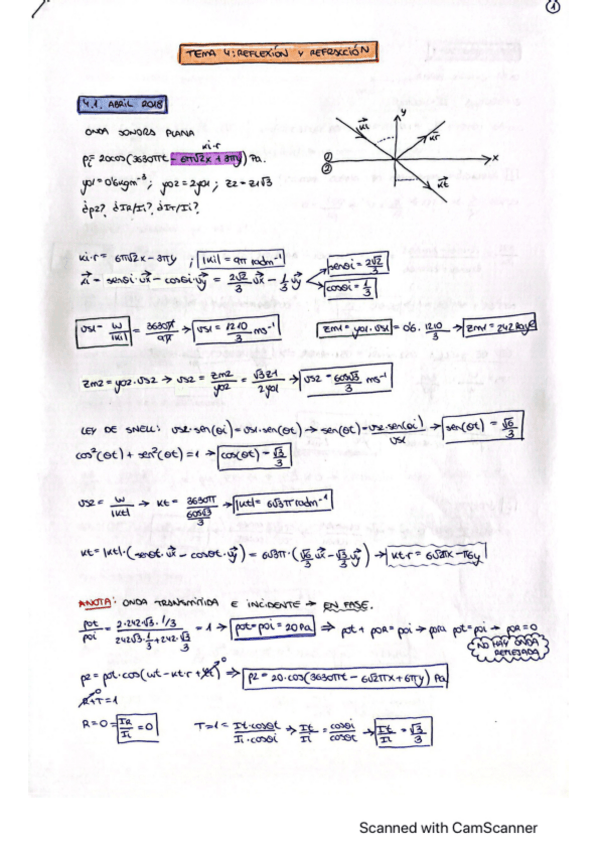 1
TEMA 4: REFLEXIÓN Y REFRACCIÓN
4.1. ABRIL 2018
ONDA SONORA PLANA
ki·r
pi = 20cos(3630πt - 6π√2x + 3πy) Pa.
γ01 = 0'6 kgm⁻³ ; γ02 = 2γ01 ; Z2 = Z1√3
¿p2? ¿IR/Ii? ¿IT/Ii?
y
x
ki
kr
kt
1
2
ki·r = 6π√2x - 3πy ; |ki| = 9π radm⁻¹
= senθi·ux - cosθi·uy = 2√2/3 ux - 1/3 uy → senθi = 2√2/3
cosθi = 1/3
vs1 = w/|ki| = 3630π/9π → vs1 = 1210/3 ms⁻¹
Zm1 = γ01·vs1 = 0'6 · 1210/3 → Zm1 = 242
Zm2 = γ02·vs2 → vs2 = Zm2/γ02 = √3Z1/2γ01 → vs2 = 605√3/3 ms⁻¹
LEY DE SNELL: vs2·sen(θi) = vs1·sen(θt) → sen(θt) = vs2·sen(θi)/vs1 → sen(θt) = √6/3
cos²(θt) + sen²(θt) = 1 → cos(θt) = √3/3
vs2 = w/|kt| → kt = 3630π/(605√3/3) → |kt| = 6√3π radm⁻¹
kt = |kt|·(senθt·ux - cosθt·uy) = 6√3π·(√6/3 ux - √3/3 uy) → kt·r = 6√2πx - π6y
ANOTA: ONDA TRANSMITIDA E INCIDENTE → EN FASE.
p0t/p0i = 2·242·√3·1/3 / (242√3·1/3 + 242·√3/3) = 1 → p0t = p0i = 20 Pa ⇒ p0t + p0R = p0i → para p0t = p0i → p0R = 0
NO HAY ONDA REFLEJADA
p2 = p0t·cos(wt - kt·r + ) 0 ⇒ p2 = 20·cos(3630πt - 6√2πx + 6πy) Pa
R+T=1
R = 0 = IR/Ii = 0
T = 1 = It·cosθt/Ii·cosθi ⇒ It/Ii = cosθi/cosθt → It/Ii = √3/3
Scanned with CamScanner